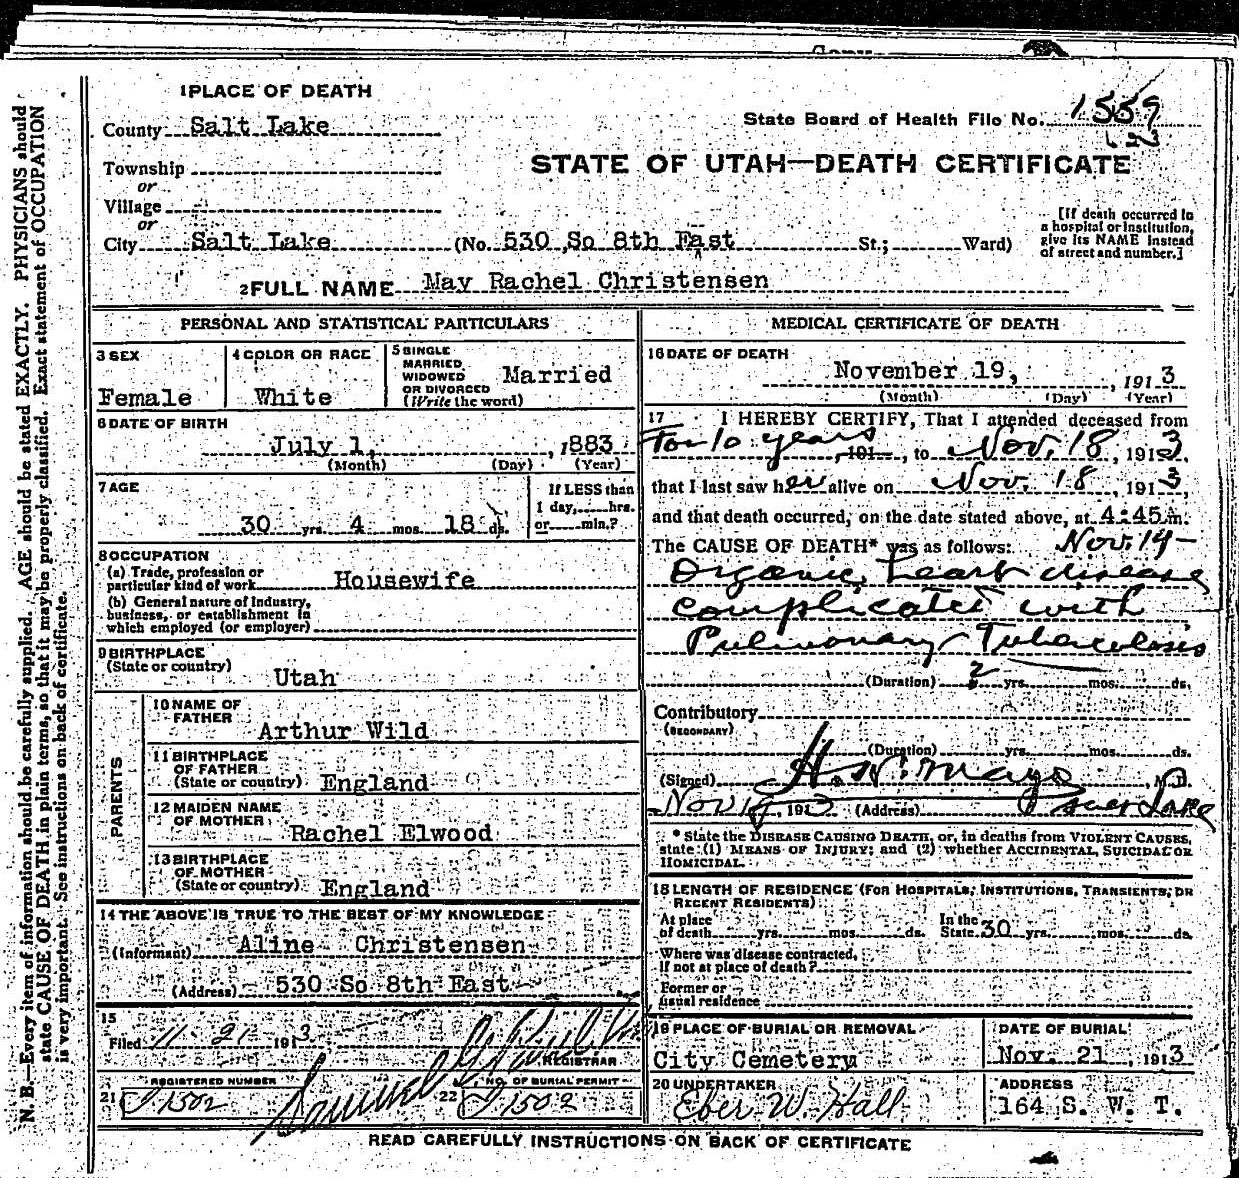 1 PLACE OF DEATH
County Salt Lake
State Board of Health File No. 1559
Township
STATE OF UTAH—DEATH CERTIFICATE
or
Village
or
City Salt Lake (No. 530 So 8th East St.; Ward)
[If death occurred in
a hospital or institution,
give its NAME instead
of street and number.]
2 FULL NAME May Rachel Christensen
PERSONAL AND STATISTICAL PARTICULARS
3 SEX
Female
4 COLOR OR RACE
White
5 SINGLE
MARRIED
WIDOWED
OR DIVORCED
(Write the word)
Married
6 DATE OF BIRTH
July 1, , 1883
(Month) (Day) (Year)
7 AGE
30 yrs 4 mos. 18 ds.
If LESS than
1 day, hrs.
or min.?
8 OCCUPATION
(a) Trade, profession or
particular kind of work Housewife
(b) General nature of industry,
business, or establishment in
which employed (or employer)
9 BIRTHPLACE
(State or country)
Utah
PARENTS
10 NAME OF
FATHER
Arthur Wild
11 BIRTHPLACE
OF FATHER
(State or country) England
12 MAIDEN NAME
OF MOTHER
Rachel Elwood
13 BIRTHPLACE
OF MOTHER
(State or country) England
14 THE ABOVE IS TRUE TO THE BEST OF MY KNOWLEDGE
(Informant) Aline Christensen
(Address) 530 So 8th East
15
Filed 11-21 1913
REGISTRAR
REGISTERED NUMBER
21 J 1502
Samuel G Paul
NO. OF BURIAL PERMIT
22 J 1502
MEDICAL CERTIFICATE OF DEATH
16 DATE OF DEATH
November 19, , 1913
(Month) (Day) (Year)
17 I HEREBY CERTIFY, That I attended deceased from
For 10 years , 191 , to Nov. 18 , 1913,
that I last saw her alive on Nov. 18 , 1913,
and that death occurred, on the date stated above, at 4:45 m.
The CAUSE OF DEATH* was as follows: Nov. 19-
Organic heart disease
complicated with
Pulmonary Tuberculosis
(Duration) 2 yrs. mos. ds.
Contributory
(SECONDARY)
(Duration) yrs. mos. ds.
(Signed) H. N. Mayo , M. D.
Nov 19, 1913 (Address) Salt Lake
* State the DISEASE CAUSING DEATH, or, in deaths from VIOLENT CAUSES,
state (1) MEANS OF INJURY; and (2) whether ACCIDENTAL, SUICIDAL OR
HOMICIDAL.
18 LENGTH OF RESIDENCE (FOR HOSPITALS, INSTITUTIONS, TRANSIENTS, OR
RECENT RESIDENTS)
At place
of death yrs. mos. ds.
In the
State 30 yrs. mos. ds.
Where was disease contracted,
If not at place of death?
Former or
usual residence
19 PLACE OF BURIAL OR REMOVAL
City Cemetery
DATE OF BURIAL
Nov. 21 , 1913
20 UNDERTAKER
Eber W. Hall
ADDRESS
164 S. W. T.
READ CAREFULLY INSTRUCTIONS ON BACK OF CERTIFICATE
N. B.—Every item of information should be carefully supplied. AGE should be stated EXACTLY. PHYSICIANS should
state CAUSE OF DEATH in plain terms, so that it may be properly classified. Exact statement of OCCUPATION
is very important. See instructions on back of certificate.